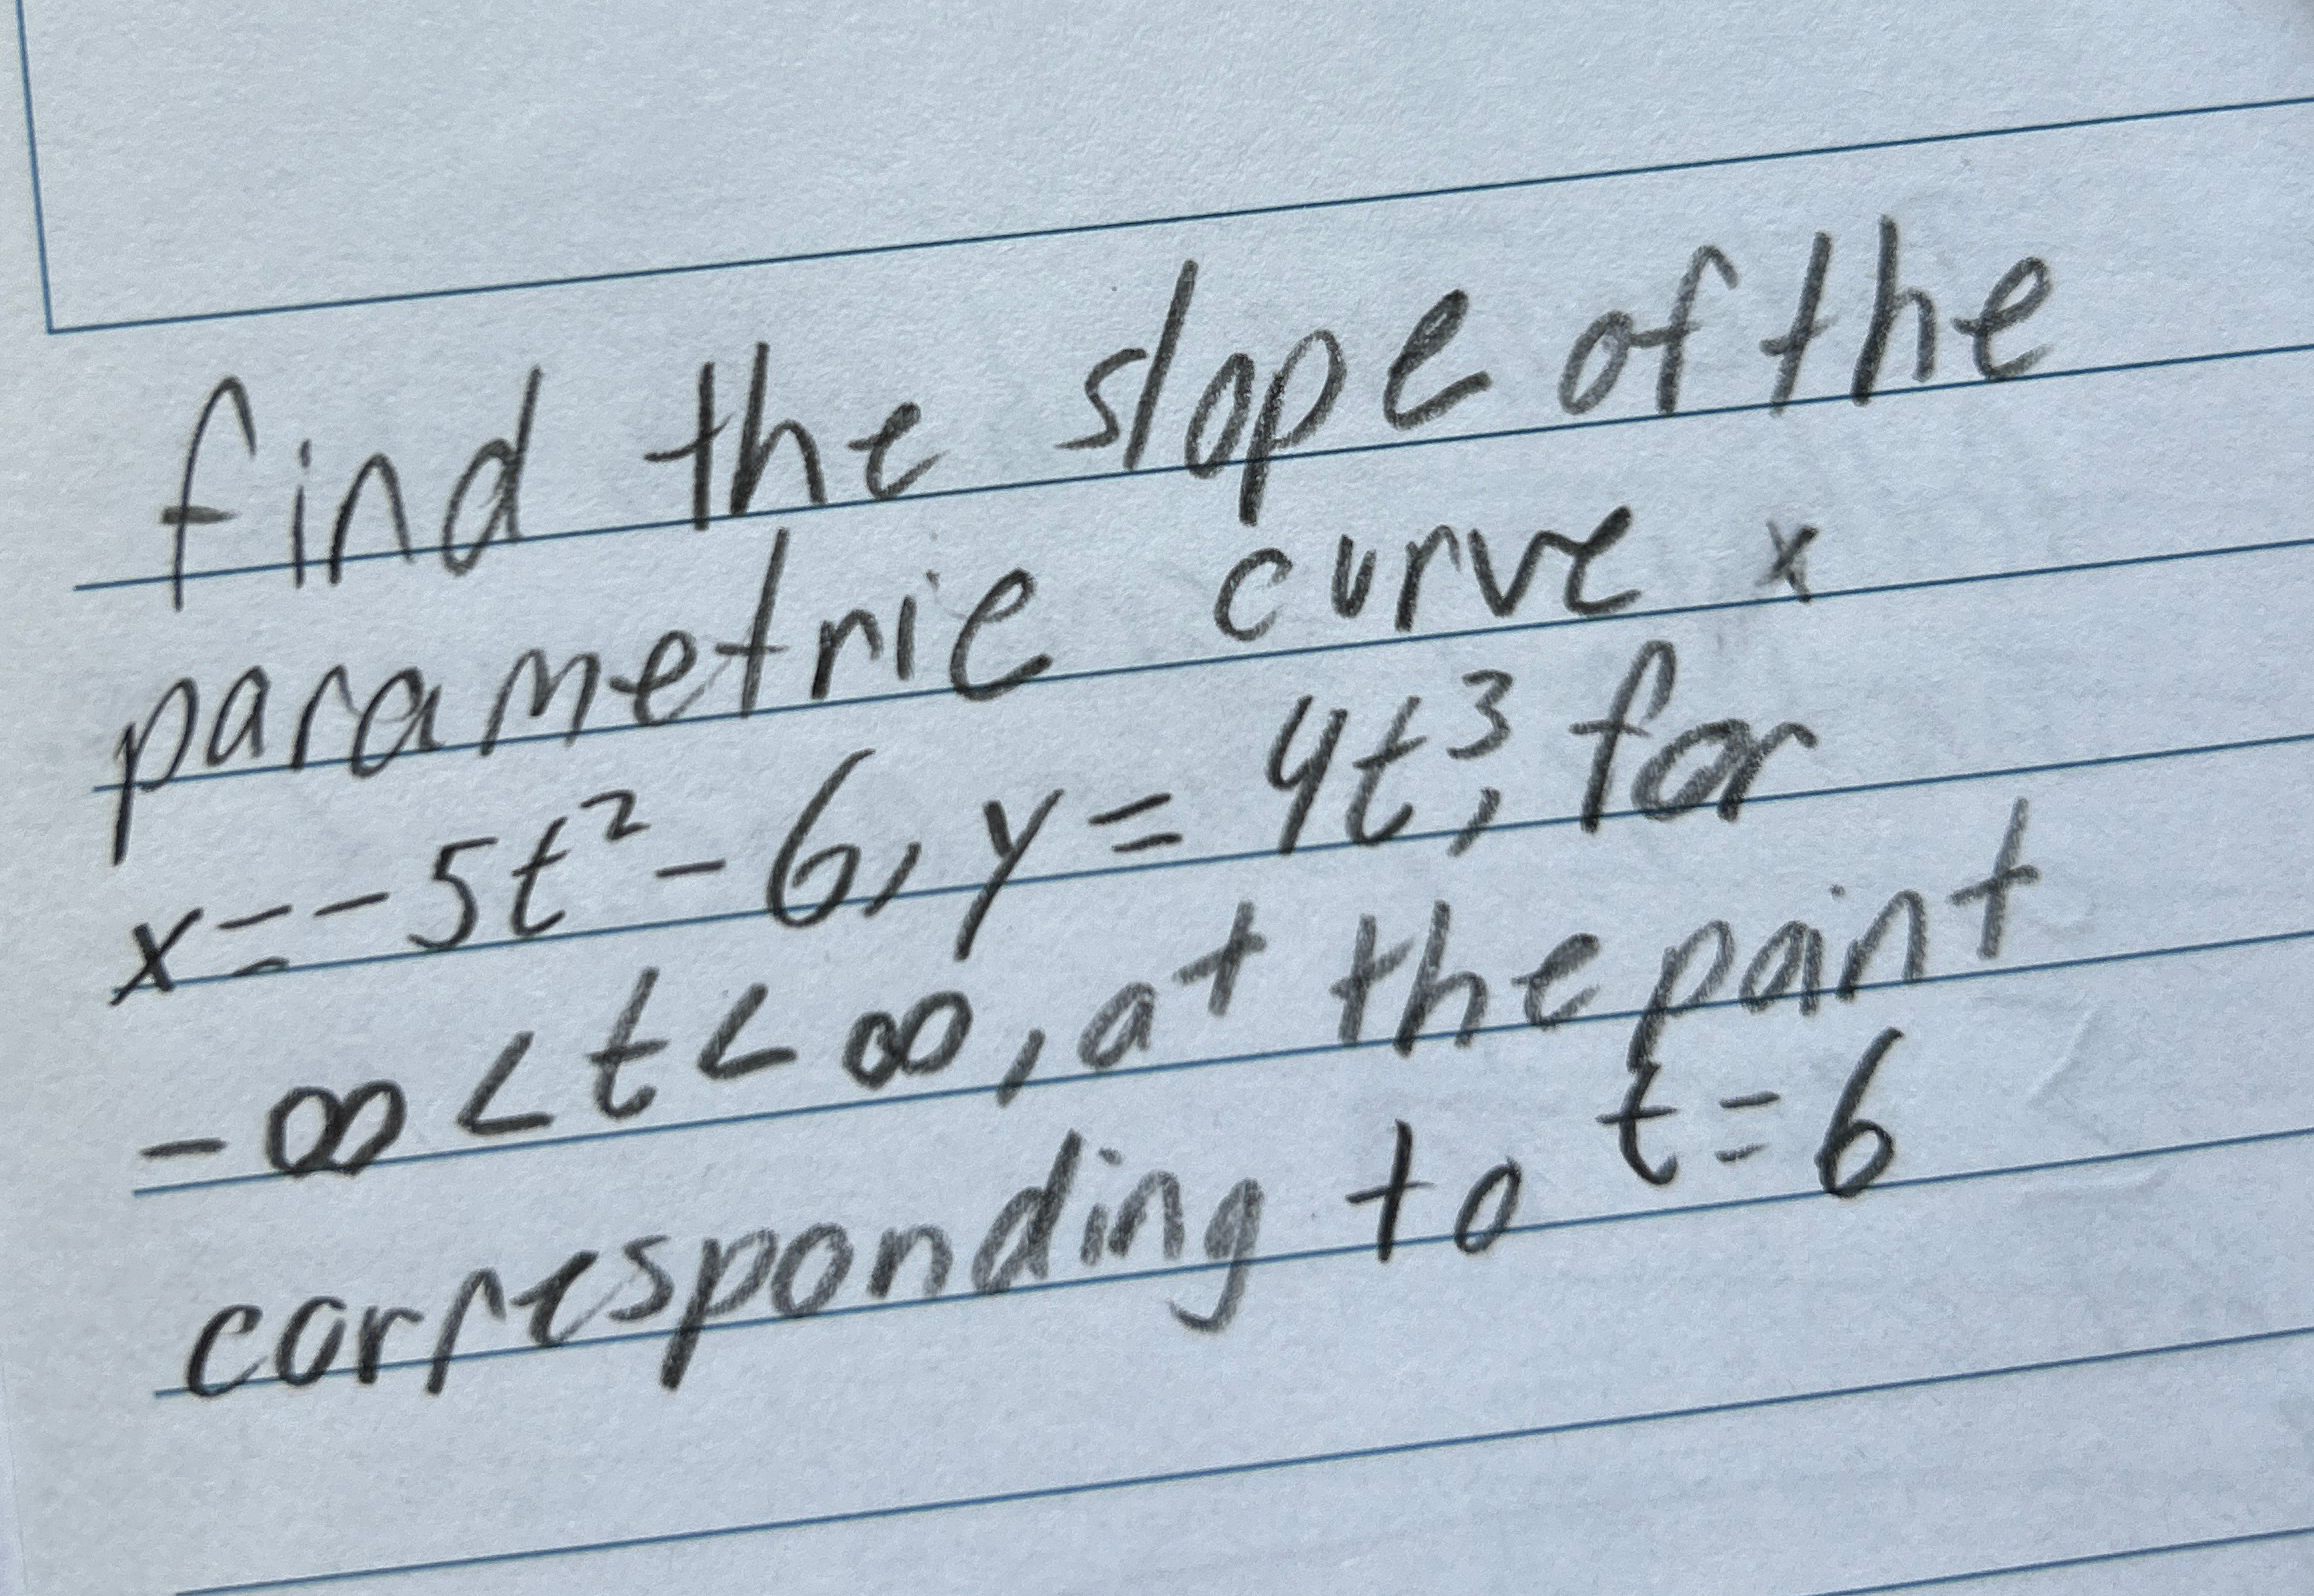 find the slope of the
parametric curve x
x=-5t²-6, y=4t³, for
-∞<t<∞, at the point
corresponding to t=6